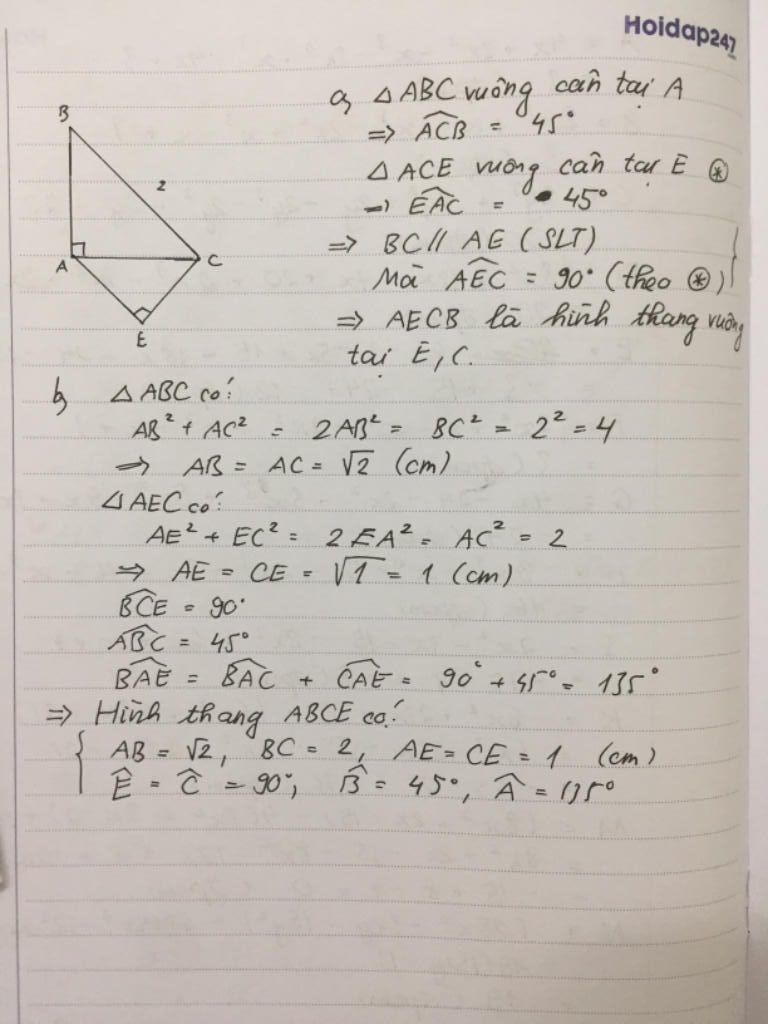 Hoidap247
B
2
A
C
E
a, △ABC vuông cân tại A
=> \widehat{ACB} = 45°
△ACE vuông cân tại E ⊛
=> \widehat{EAC} = 45°
=> BC // AE (SLT)
Mà \widehat{AEC} = 90° (theo ⊛)
=> AECB là hình thang vuông
tại E, C.
b, △ABC có:
AB² + AC² = 2AB² = BC² = 2² = 4
=> AB = AC = √2 (cm)
△AEC có:
AE² + EC² = 2EA² = AC² = 2
=> AE = CE = √1 = 1 (cm)
\widehat{BCE} = 90°
\widehat{ABC} = 45°
\widehat{BAE} = \widehat{BAC} + \widehat{CAE} = 90° + 45° = 135°
=> Hình thang ABCE có:
AB = √2, BC = 2, AE = CE = 1 (cm)
\widehat{E} = \widehat{C} = 90°, \widehat{B} = 45°, \widehat{A} = 135°